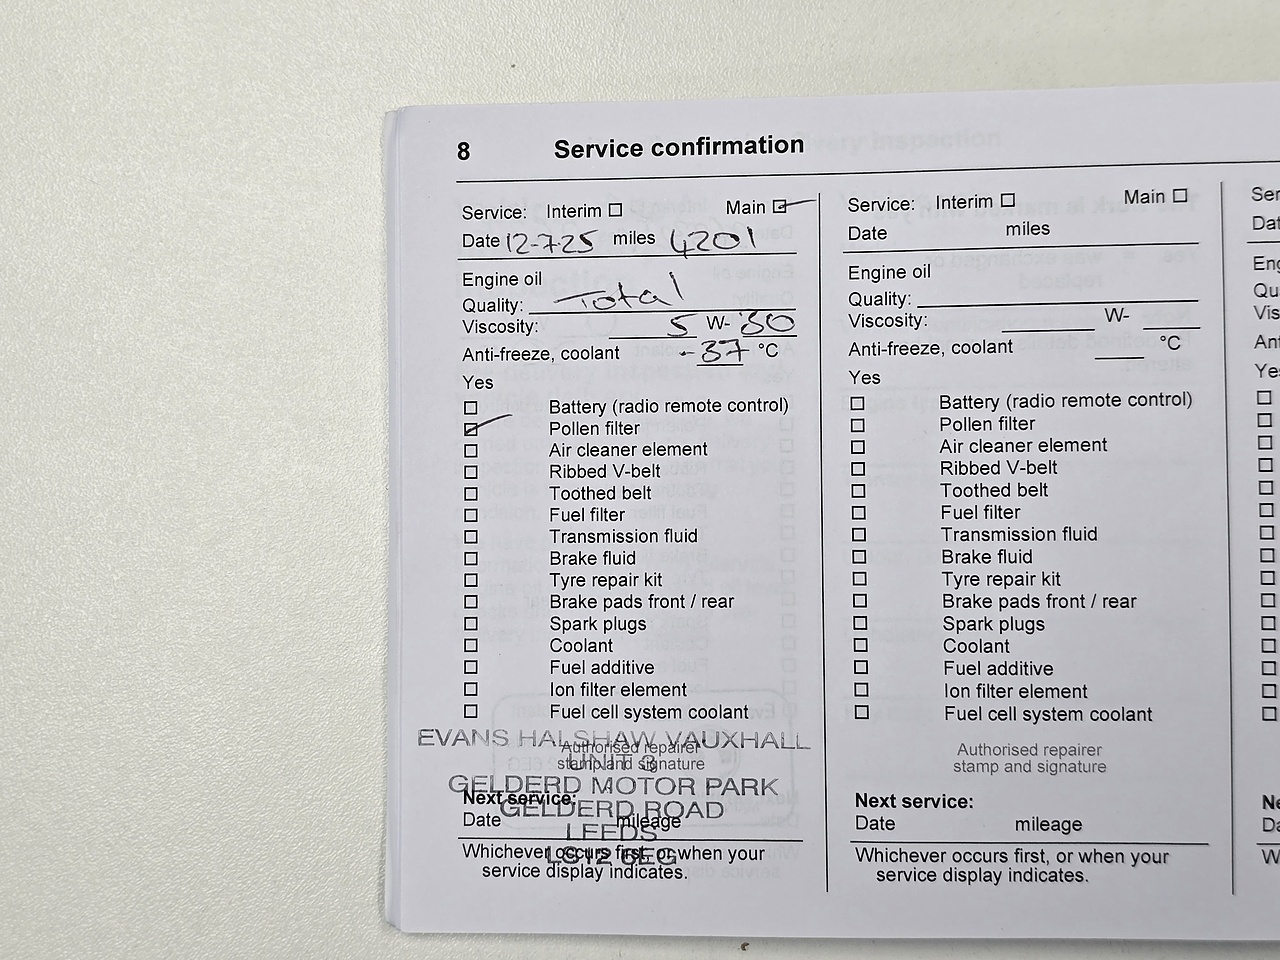 8 Service confirmation
Service: Interim Main
Date 12-7-25 miles 4201
Engine oil
Quality: Total
Viscosity: 5 W- 30
Anti-freeze, coolant -37 °C
Yes
Battery (radio remote control)
Pollen filter
Air cleaner element
Ribbed V-belt
Toothed belt
Fuel filter
Transmission fluid
Brake fluid
Tyre repair kit
Brake pads front / rear
Spark plugs
Coolant
Fuel additive
Ion filter element
Fuel cell system coolant
EVANS HALSHAW VAUXHALL
Authorised repairer
UNIT 3
stamp and signature
GELDERD MOTOR PARK
Next service:
GELDERD ROAD
Date mileage
LEEDS
Whichever occurs first, or when your
LS12 6EG
service display indicates.
Service: Interim Main
Date miles
Engine oil
Quality:
Viscosity: W-
Anti-freeze, coolant °C
Yes
Battery (radio remote control)
Pollen filter
Air cleaner element
Ribbed V-belt
Toothed belt
Fuel filter
Transmission fluid
Brake fluid
Tyre repair kit
Brake pads front / rear
Spark plugs
Coolant
Fuel additive
Ion filter element
Fuel cell system coolant
Authorised repairer
stamp and signature
Next service:
Date mileage
Whichever occurs first, or when your
service display indicates.